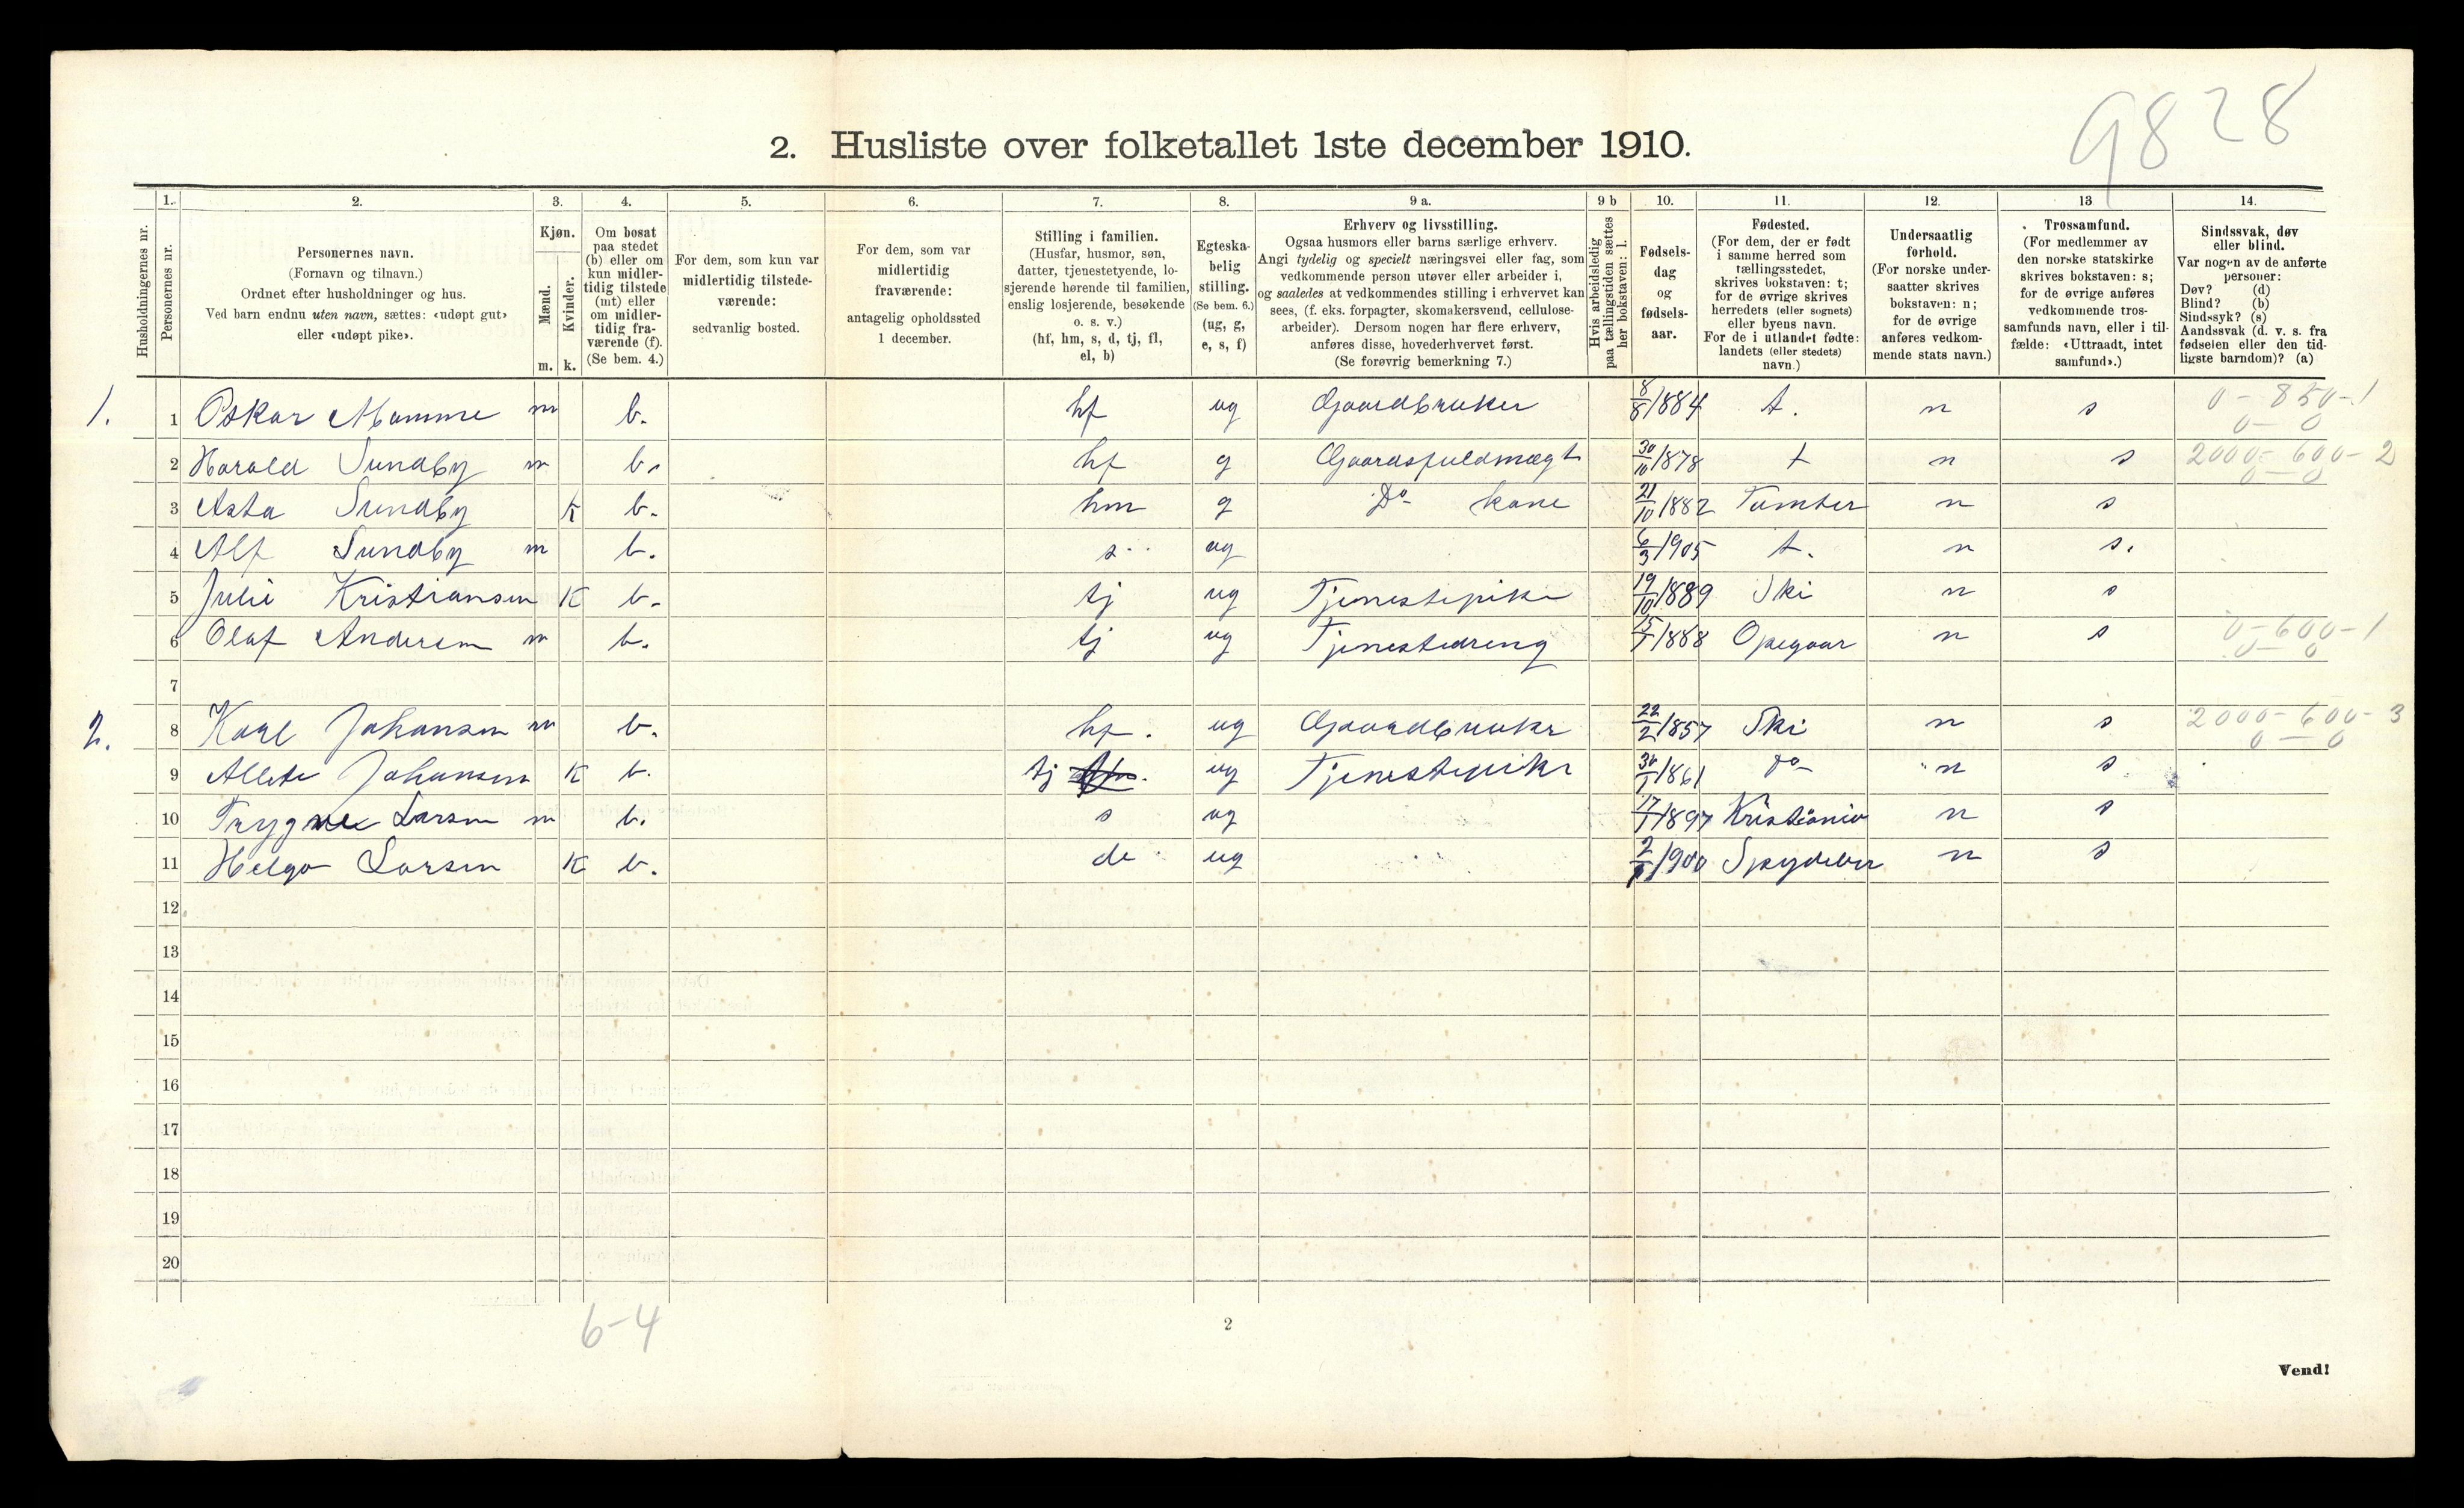 9828
2. Husliste over folketallet 1ste december 1910.
Husholdningernes nr.
1.
Personernes nr.
2.
Personernes navn.
(Fornavn og tilnavn.)
Ordnet efter husholdninger og hus.
Ved barn endnu uten navn, sættes: «udøpt gut»
eller «udøpt pike».
3.
Kjøn.
Mænd.
Kvinder.
m. k.
4.
Om bosat
paa stedet
(b) eller om
kun midler-
tidig tilstede
(mt) eller
om midler-
tidig fra-
værende (f).
(Se bem. 4.)
5.
For dem, som kun var
midlertidig tilstede-
værende:
sedvanlig bosted.
6.
For dem, som var
midlertidig
fraværende:
antagelig opholdssted
1 december.
7.
Stilling i familien.
(Husfar, husmor, søn,
datter, tjenestetyende, lo-
sjerende hørende til familien,
enslig losjerende, besøkende
o. s. v.)
(hf, hm, s, d, tj, fl,
el, b)
8.
Egteska-
belig
stilling.
(Se bem. 6.)
(ug, g,
e, s, f)
9 a.
Erhverv og livsstilling.
Ogsaa husmors eller barns særlige erhverv.
Angi tydelig og specielt næringsvei eller fag, som
vedkommende person utøver eller arbeider i,
og saaledes at vedkommendes stilling i erhvervet kan
sees, (f. eks. forpagter, skomakersvend, cellulose-
arbeider). Dersom nogen har flere erhverv,
anføres disse, hovederhvervet først.
(Se forøvrig bemerkning 7.)
9 b
Hvis arbeidsledig
paa tællingstiden sættes
her bokstaven: l.
10.
Fødsels-
dag
og
fødsels-
aar.
11.
Fødested.
(For dem, der er født
i samme herred som
tællingsstedet,
skrives bokstaven: t;
for de øvrige skrives
herredets (eller sognets)
eller byens navn.
For de i utlandet fødte:
landets (eller stedets)
navn.)
12.
Undersaatlig
forhold.
(For norske under-
saatter skrives
bokstaven: n;
for de øvrige
anføres vedkom-
mende stats navn.)
13
Trossamfund.
(For medlemmer av
den norske statskirke
skrives bokstaven: s;
for de øvrige anføres
vedkommende tros-
samfunds navn, eller i til-
fælde: «Uttraadt, intet
samfund».)
14.
Sindssvak, døv
eller blind.
Var nogen av de anførte
personer:
Døv? (d)
Blind? (b)
Sindssyk? (s)
Aandssvak (d. v. s. fra
fødselen eller den tid-
ligste barndom)? (a)
1. 1 Oskar Mamme m b. hf ug Gaardbruker 8/8 1884 t. n s 0-850-1
0-0
2 Harald Sundby m b. hf g Gaardsfuldmægt 30/10 1878 t n s 2000-600-2
0-0
3 Asta Sundby K b. hm g Do kone 21/10 1882 Tomter n s
4 Alf Sundby m b. s ug 6/3 1905 t. n s.
5 Julie Kristiansen K b. tj ug Tjenestepike 19/10 1889 Ski n s
6 Olaf Andersen m b. tj ug Tjenestedreng 15/1 1888 Opegaar n s 0-600-1
0-0
7
2. 8 Karl Johansen m b. hf. ug Gaardbruker 22/2 1857 Ski n s 2000-600-3
0-0
9 Allete Johansen K b. tj ug Tjenestepike /1 1861 do n s
10 Trygve Larsen m b. s ug 17/1 1897 Kristiania n s
11 Helga Larsen K b. de ug 2/ 1900 Spydeber n s
12
13
14
15
16
17
18
19
20
6-4
2
Vend!